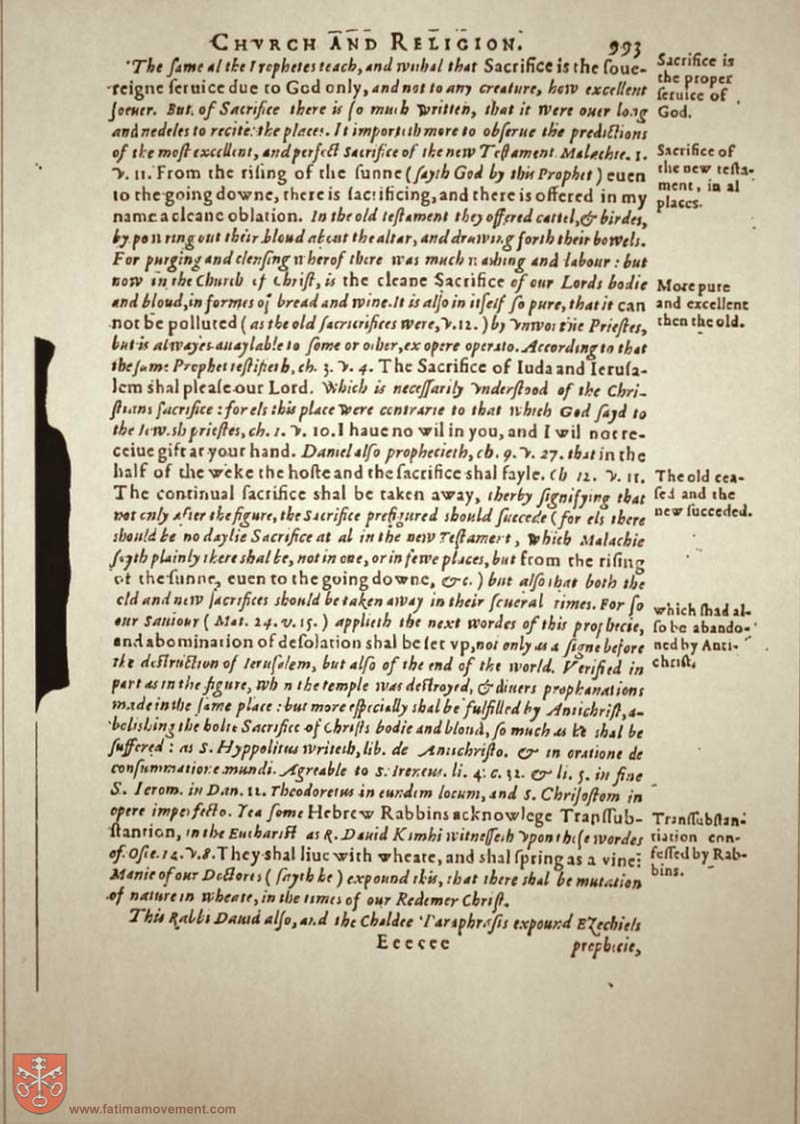 CHVRCH AND RELIGION. 993
The ſame al the Prophetes teach, and withal that Sacrifice is the ſoue-
reigne ſeruice due to God only, and not to any creature, how excellent
ſoeuer. But of Sacrifice there is ſo much written, that it were ouer long
and nedeles to recite the places. It importeth more to obſerue the predictions
of the moſt excellent, and perfect Sacrifice of the new Teſtament. Malachie. 1.
v. 11. From the riſing of the ſunne (ſayth God by this Prophet) euen
to the going downe, there is ſacrificing, and there is offered in my
name a cleane oblation. In the old teſtament they offered cattel, & birdes,
by powring out their bloud about the altar, and drawing forth their bowels.
For purging and clenſing wherof there was much waſhing and labour: but
now in the Church of Chriſt, is the cleane Sacrifice of our Lords bodie
and bloud, in formes of bread and wine. It is alſo in itſelf ſo pure, that it can
not be polluted (as the old ſacrificies were, v. 12.) by vnworthie Prieſtes,
but is alwayes auaylable to ſome or other, ex opere operato. According to that
the ſame Prophet teſtifieth, ch. 3. v. 4. The Sacrifice of Iuda and Ieruſa-
lem shal pleaſe our Lord. Which is neceſſarily vnderſtood of the Chri-
ſtians ſacrifice: for els this place were contrarie to that which God ſayd to
the Iewiſh prieſtes, ch. 1. v. 10. I haue no wil in you, and I wil not re-
ceiue gift at your hand. Daniel alſo prophecieth, ch. 9. v. 27. that in the
half of the weke the hoſte and the ſacrifice shal fayle. Ch 12. v. 11.
The continual ſacrifice shal be taken away, therby ſignifying that
not only after the figure, the Sacrifice prefigured should ſuccede (for els there
should be no daylie Sacrifice at al in the new Teſtament, which Malachie
ſayth plainly there shal be, not in one, or in fewe places, but from the riſing
of the ſunne, euen to the going downe, &c.) but alſo that both the
old and new ſacrifices should be taken away in their ſeueral times. For ſo
our Sauiour (Mat. 24. v. 15.) applieth the next wordes of this prophecie,
and abomination of deſolation shal be ſet vp, not only as a ſigne before
the deſtruction of Ieruſalem, but alſo of the end of the world. Verified in
part as in the figure, when the temple was deſtroyed, & diuers prophanations
made in the ſame place: but more eſpecially shal be fulfilled by Antichriſt, a-
bolishing the holie Sacrifice of Chriſts bodie and bloud, ſo much as he shal be
ſuffered: as S. Hyppolitus writeth, lib. de Antichriſto. & in oratione de
conſummatione mundi. Agreable to S. Ireneus. li. 4. c. 32. & li. 5. in fine
S. Ierom. in Dan. 12. Theodoretus in eundem locum, and S. Chriſoſtom in
opere imperfecto. Yea ſome Hebrew Rabbins acknowlege Tranſſub-
ſtantion, in the Euchariſt as R. Dauid Kimhi witneſſeth vpon theſe wordes
of Oſie. 14. v. 8. They shal liue with wheate, and shal ſpring as a vine:
Manie of our Doctores (ſayth he) expound this, that there shal be mutation
of nature in wheate, in the times of our Redemer Chriſt.
This Rabbi Dauid alſo, and the Chaldee Paraphraſis expound Ezechiels
Eeeeee prophecie,
Sacrifice is
the proper
ſeruice of
God.
Sacrifice of
the new teſta-
ment, in al
places.
More pure
and excellent
then the old.
The old cea-
ſed and the
new ſucceded.
which shad al-
ſo be abando-
ned by Anti-
chriſt.
Tranſſubſtan-
tiation con-
feſſed by Rab-
bins.
www.fatimamovement.com